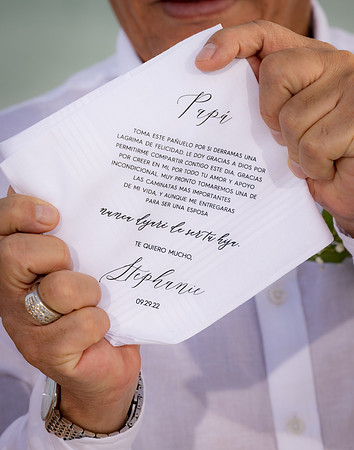 Papá
TOMA ESTE PAÑUELO POR SI DERRAMAS UNA
LAGRIMA DE FELICIDAD. LE DOY GRACIAS A DIOS POR
PERMITIRME COMPARTIR CONTIGO ESTE DIA. GRACIAS
POR CREER EN MI, POR TODO TU AMOR Y APOYO
INCONDICIONAL. MUY PRONTO TOMAREMOS UNA DE
LAS CAMINATAS MAS IMPORTANTES
DE MI VIDA, Y AUNQUE ME ENTREGARAS
PARA SER UNA ESPOSA
nunca dejaré de ser tú hija.
TE QUIERO MUCHO,
Stephanie
09.29.22